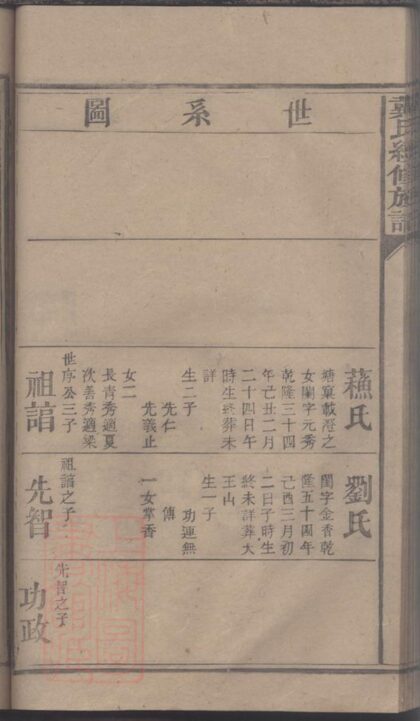 世系圖
氏續修族譜
蘓氏
塘窠載澄之
女閨字元秀
乾隆三十四
年己丑二月
二十四日午
時生終葬未
詳
生二子
先仁
先義止
女二
長青秀適夏
次善秀適梁
祖諳
世序公三子
劉氏
閨字金香乾
隆五十四年
己酉三月初
二日子時生
終未詳葬大
王山
生一子
功連無
傳
一女掌香
先智
祖諳之子
功政
先智之子